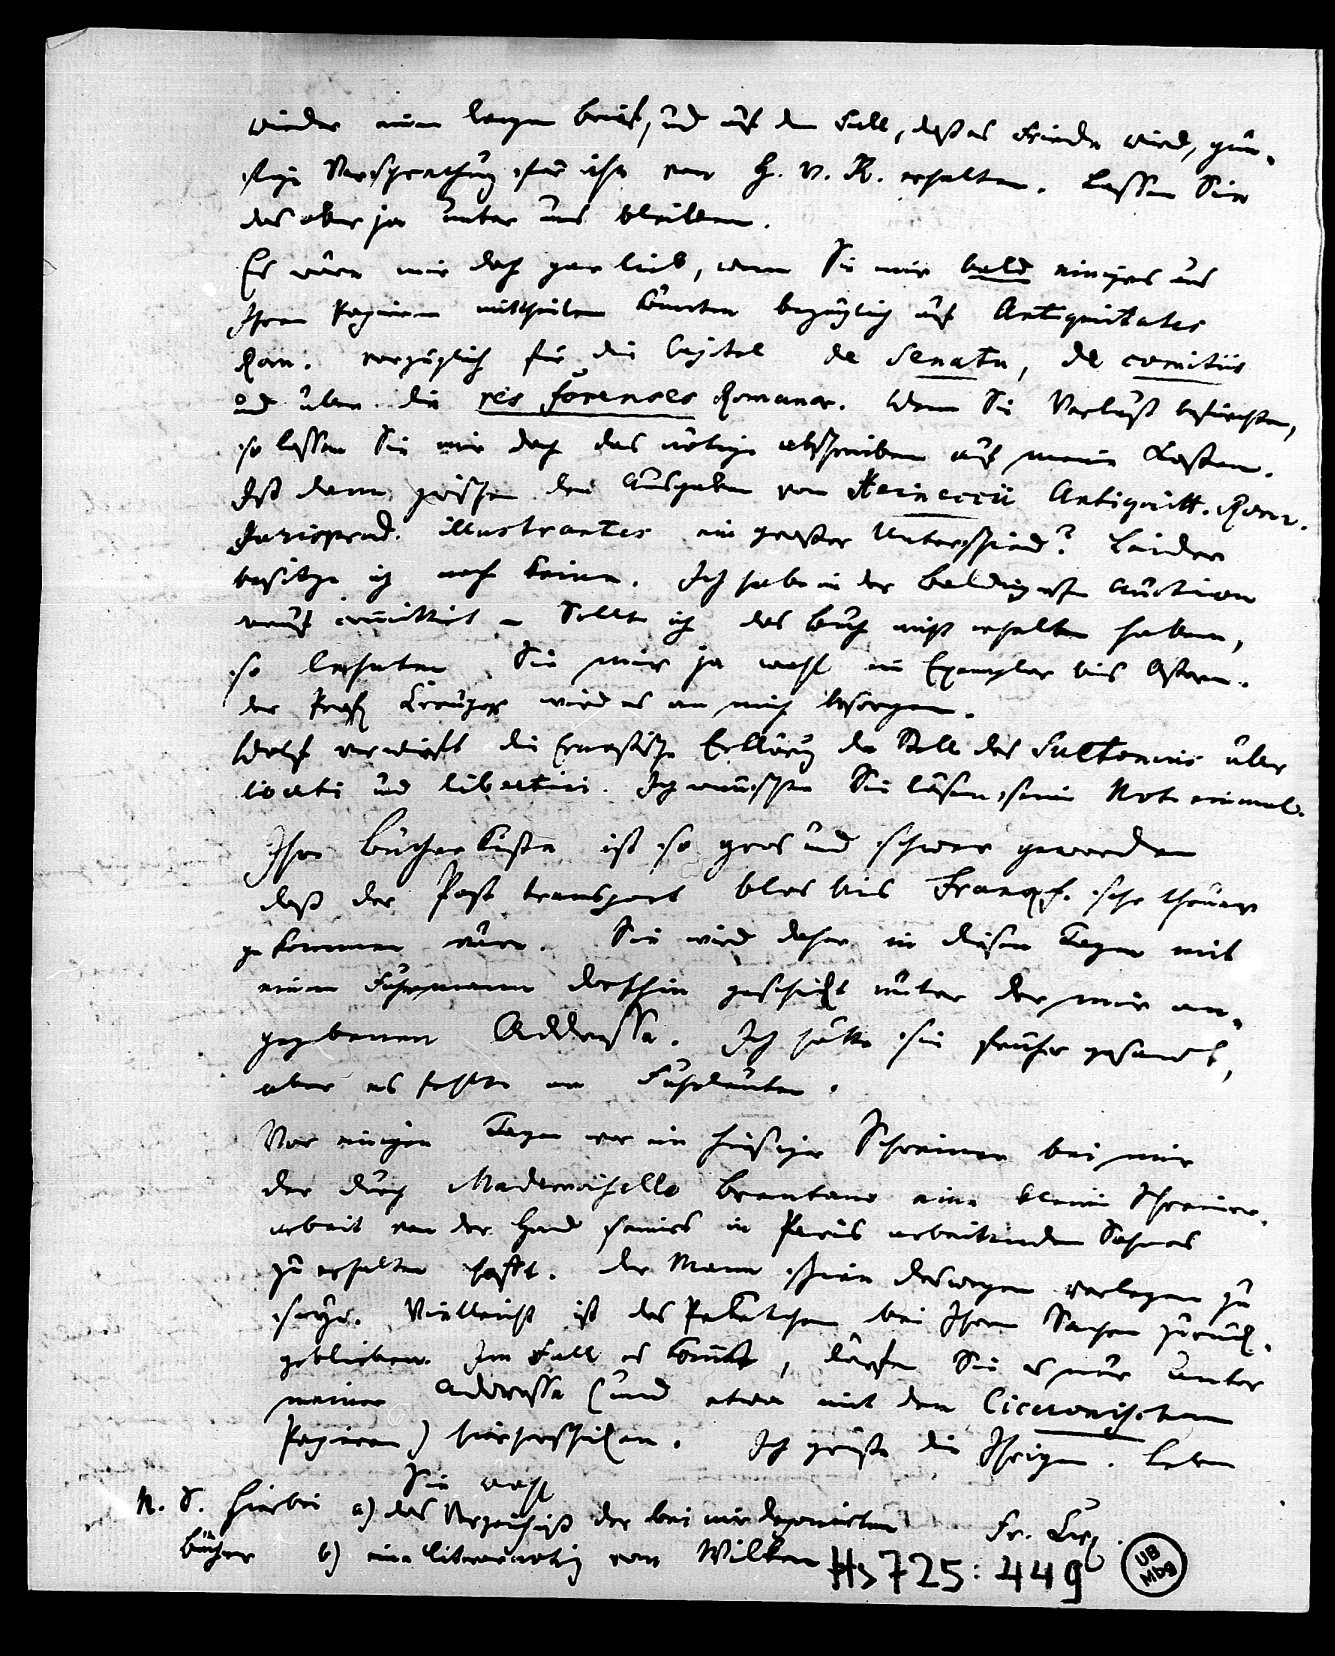 wieder einen langen Brief, und auf den Fall, daß es Friede wird, gün-
stige Versprechung für ihn von H. v. R. erhalten. Lassen Sie
das aber ja unter uns bleiben.
Es wäre mir doch gar lieb, wenn Sie mir bald einiges aus
Ihren Papieren mittheilen könnten bezüglich auf Antiquitates
Rom. vorzüglich für die Capitel de Senatu, de comitiis
und über die res forenses Romanor. Wenn Sie Verlust befürchten,
so lassen Sie mir doch das nötige abschreiben auf meine Kosten.
Ist denn zwischen den Ausgaben von Heineccii Antiquitt. Romm.
Jurisprud. illustrantes ein großer Unterschied? Leider
besitze ich noch keine. Ich habe in der Baldingerschen Auction
drauf committirt – Sollte ich das Buch nicht erhalten haben,
so leyheten Sie mir ja wohl ein Exemplar bis Ostern.
der Prof Creuzer wird es an mich besorgen.
Wolf verwirft die Ernestische Erklärung der Stelle des Suetonius über
liberti und libertini. Ich wünschte Sie läsen seine Note einmal.
Ihre Bücherkiste ist so gros und schwer geworden
daß der Post transport blos bis Francf. sehr theuer
gekommen wäre. Sie wird daher in diesen Tagen mit
einem Fuhrmann dorthin geschickt unter der mir an-
gegebenen Addresse. Ich hätte sie früher gesandt,
aber es fehlte an Fuhrleuten.
Vor einigen Tagen war ein hiesiger Schreiner bei mir
der durch Mademoiselle Brentano eine kleine Schreiner-
arbeit von der Hand seines in Paris arbeitenden Sohnes
zu erhalten hofft. Der Mann schien deswegen verlegen zu
seyn. Vielleicht ist das Paketchen bei Ihren Sachen zurück-
geblieben. Im Fall es kommt, dürfen Sie es nur unter
meiner Addresse (und etwa mit den Ciceronischen
Papieren) hierherschicken. Ich grüße die Ihrigen. Leben
Sie wohl
N. S. Hierbei a) das Verzeichniß der bei mir deponirten Fr. Crz.
Bücher b) eine literarnotiz von Wilken
Hs 725: 449
UB
Mbg